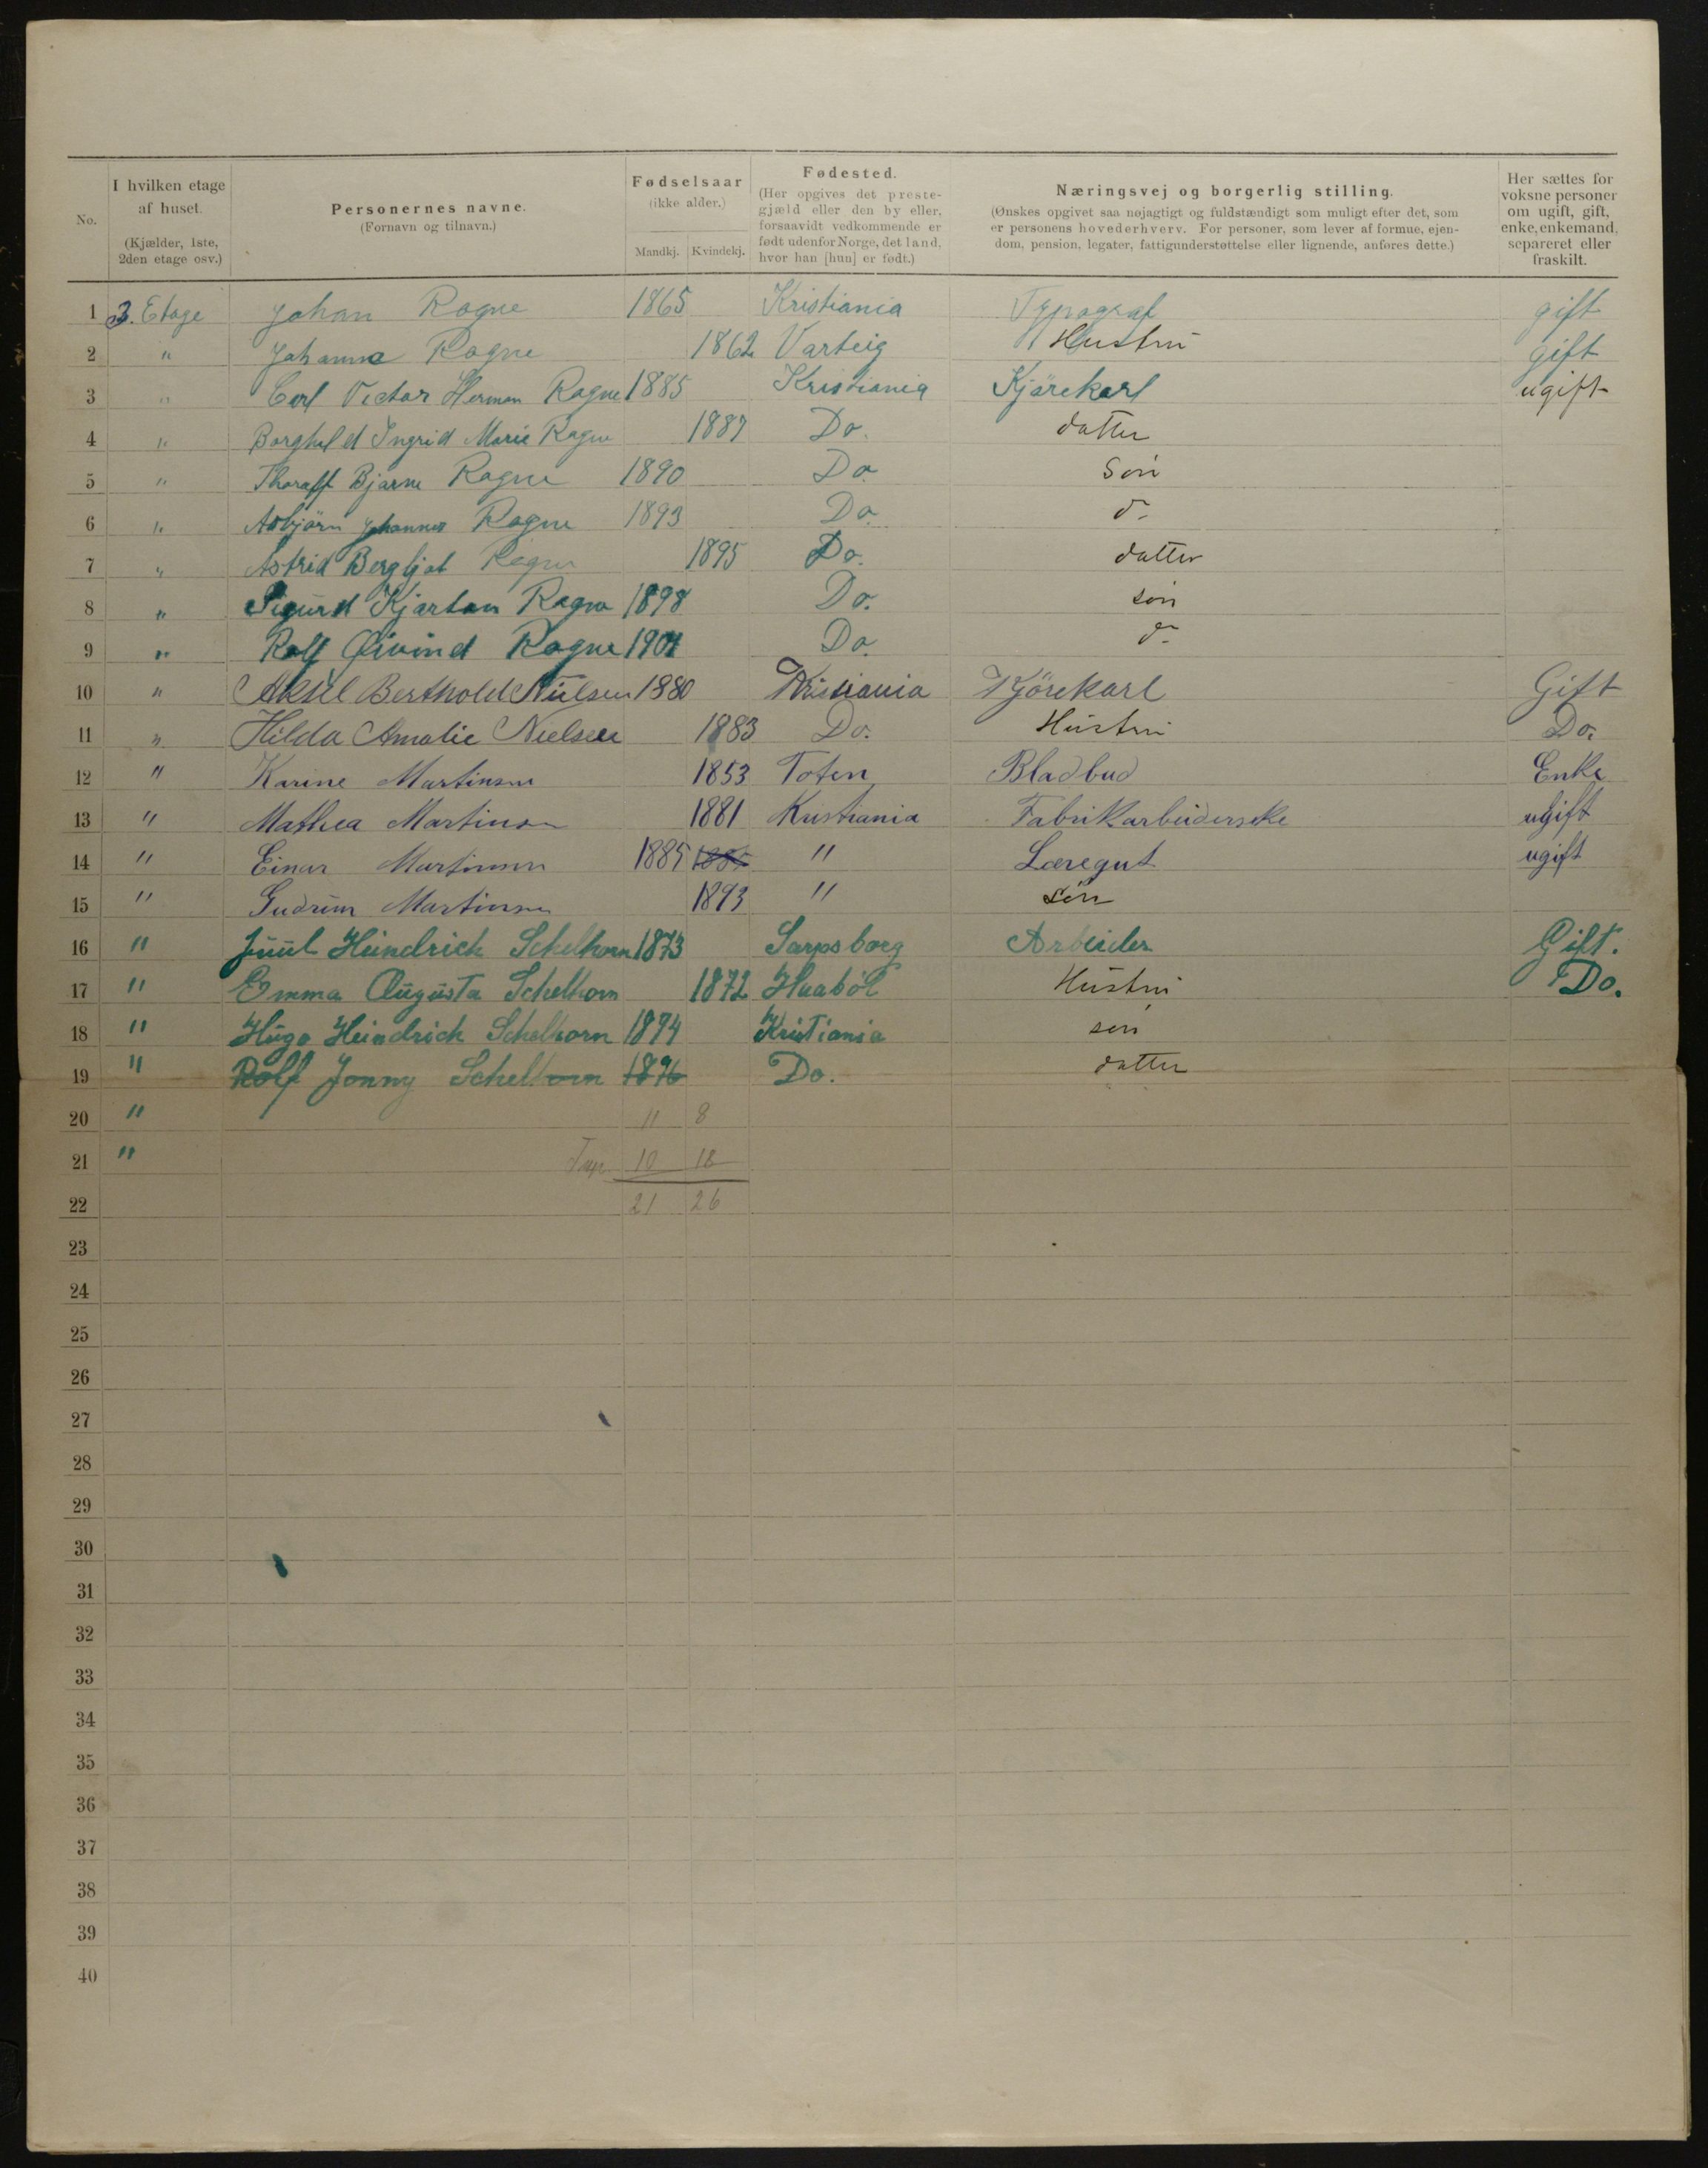 No.
I hvilken etage af huset.
(Kjælder, 1ste, 2den etage osv.)
Personernes navne.
(Fornavn og tilnavn.)
Fødselsaar
(ikke alder.)
Mandkj. Kvindekj.
Fødested.
(Her opgives det preste-
gjæld eller den by eller,
forsaavidt vedkommende er
født udenfor Norge, det land,
hvor han [hun] er født.)
Næringsvej og borgerlig stilling.
(Ønskes opgivet saa nøjagtigt og fuldstændigt som muligt efter det, som
er personens hovederhverv. For personer, som lever af formue, ejen-
dom, pension, legater, fattigunderstøttelse eller lignende, anføres dette.)
Her sættes for
voksne personer
om ugift, gift,
enke, enkemand,
separeret eller
fraskilt.
1 3. Etage Johan Ragne 1865 Kristiania Typograf gift
2 " Johanna Ragne 1862 Varteig Hustru gift
3 " Carl Victor Herman Ragne 1885 Kristiania Kjörekarl ugift
4 " Borghild Ingrid Marie Ragne 1887 Do. datter
5 " Thoralf Bjarne Ragne 1890 Do. Søn
6 " Asbjörn Johannes Ragne 1893 Do. d-
7 " Astrid Bergljot Ragne 1895 Do. datter
8 " Sigurd Kjartan Ragne 1898 Do. søn
9 " Rolf Öivind Ragne 1901 Do. d-
10 " Aksel Berthold Nielsen 1880 Kristiania Kjörekarl Gift
11 " Hilda Amalie Nielsen 1883 Do. Hustru Do.
12 " Karine Martinsen 1853 Toten Bladbud Enke
13 " Mathea Martinsen 1881 Kristiania Fabrikarbeiderske ugift
14 " Einar Martinsen 1885 1885 " Læregut ugift
15 " Gudrun Martinsen 1893 " søn
16 " Juul Heindrich Schelhorn 1873 Sarpsborg Arbeider Gift.
17 " Emma Augusta Schelhorn 1872 Huaböl Hustru Do.
18 " Hugo Heindrich Schelhorn 1894 Kristiania søn
19 " Rolf Jonny Schelhorn 1896 Do. datter
20 " 11 8
21 " 10 18
22 21 26
23
24
25
26
27
28
29
30
31
32
33
34
35
36
37
38
39
40